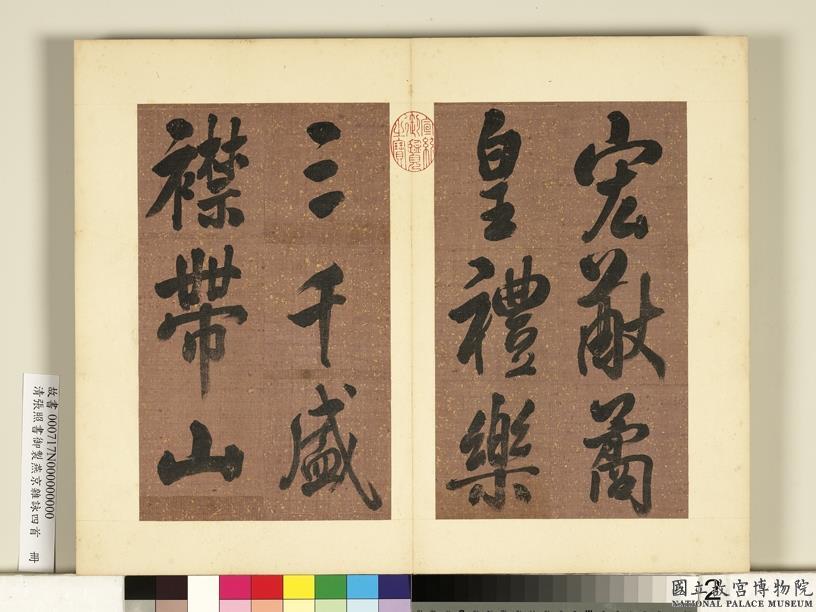 宏猷矞
皇禮樂
三千盛
襟帶山
宣統
御覽
之寶
故書 000717N000000000
清張照書御製燕京雜詠四首 冊
2
國立故宮博物院
NATIONAL PALACE MUSEUM